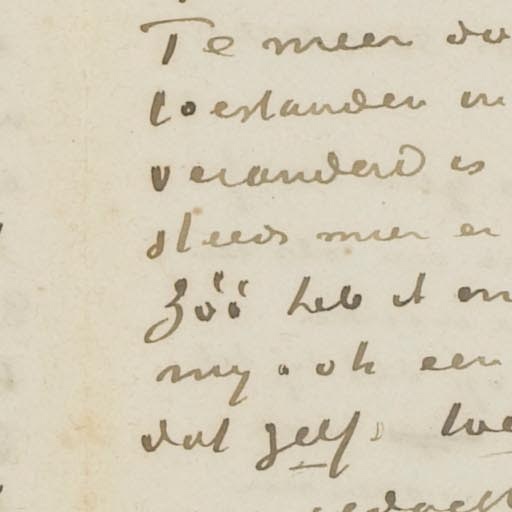 Te meer da
toestanden in
veranderd is
steeds meer en
zóó heb ik en
my ook een
dat zelf. toe